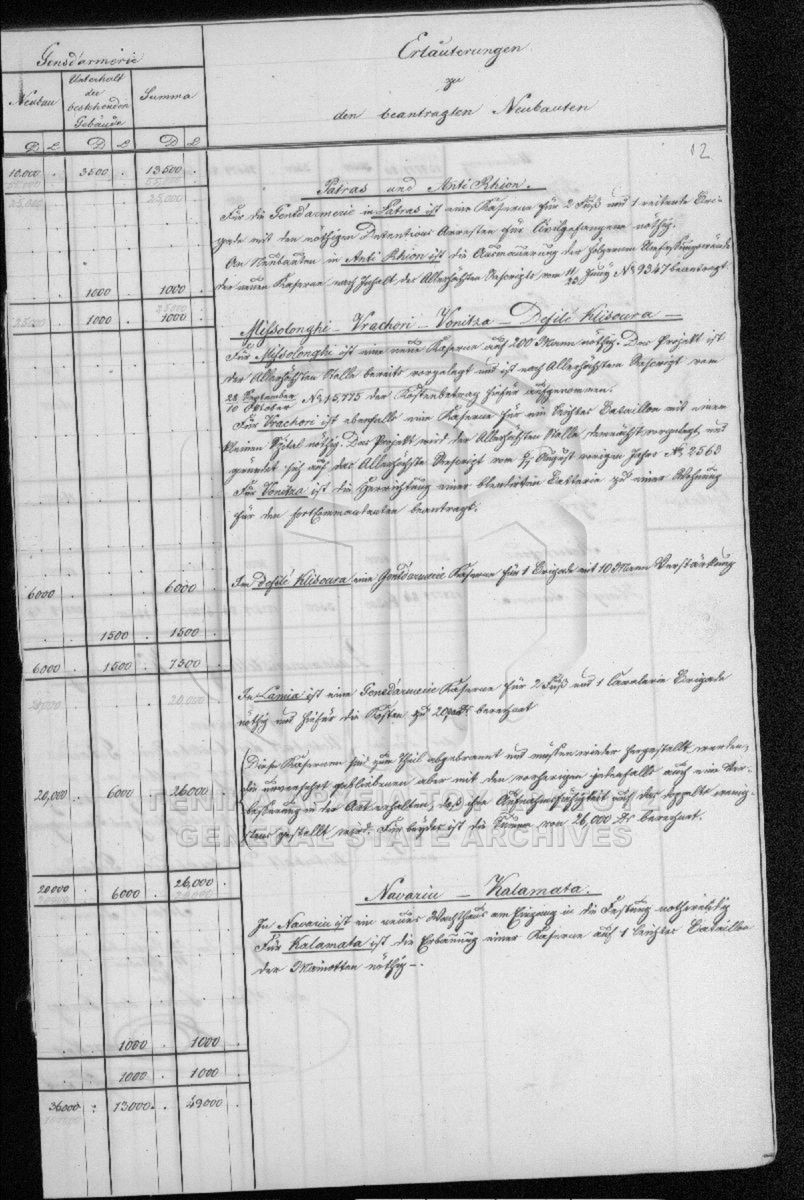 Gensdarmerie
Neubau
Unterhalt
der
bestehenden
Gebäude
Summa
D. L. D. L. D. L.
Erläuterungen
zu
den beantragten Neubauten
12
10.000 3500 13500
Patras und Anti Rhion.
Für die Gensdarmerie in Patras ist eine Kaserne für 2 Fuß und 1 reitende Bri-
gade mit den nöthigen Detentions Arresten für Civilgefangene nöthig.
An Neubauten in Anti Rhion ist die Ausmauerung der hölzernen Umfassungswände
der neuen Kaserne nach Inhalt des Allerhöchsten Rescripts vom 11/23 Juny No 9347 beantragt.
1000 1000
1000 1000
Missolonghi – Vrachori – Vonitza – Defilé Klisoura –
Für Missolonghi ist eine neue Kaserne auf 200 Mann nöthig. Das Projekt ist
der Allerhöchsten Stelle bereits vorgelegt und ist nach Allerhöchsten Rescript vom
28 September
10 Oktober No 15,775 der Kostenbetrag hiefür aufgenommen.
Für Vrachori ist ebenfalls eine Kaserne für ein leichtes Bataillon mit einem
kleinen Spital nöthig. Das Projekt wird der Allerhöchsten Stelle demnächst vorgelegt, und
gründet sich auf das Allerhöchste Rescript vom August vorigen Jahrs No 2563
Für Vonitza ist die Herrichtung einer Batterie zu einer Wohnung
für den Fortcommandanten beantragt.
6000 6000
Im Defilé Klisoura eine Gensdarmerie Kaserne für 1 Brigade mit 10 Mann Verstärkung
1500 1500
6000 1500 7500
In Lamia ist eine Gensdarmerie Kaserne für 2 Fuß und 1 Cavalerie Brigade
nöthig und hiefür die Kosten zu berechnet
Diese Kasernen sind zum Theil abgebrannt und müssen wieder hergestellt werden,
die unversehrt gebliebenen aber mit den vorherigen jedenfalls auch eine Ver-
20,000 6000 26000
besserung in der Art erhalten, daß ihre Aufnahmsfähigkeit auf das doppelte wenig-
stens gestellt wird. Für beydes ist die Summe von 26,000 Dr berechnet.
20000 6000 26,000
Navarin – Kalamata.
In Navarin ist ein neues Wachthaus am Eingang in die Festung nothwendig
Für Kalamata ist die Erbauung einer Kaserne auf 1 leichtes Bataillon
der Mainotten nöthig –.
1000 1000
1000 1000
36000 13000 49000
GENERAL STATE ARCHIVES